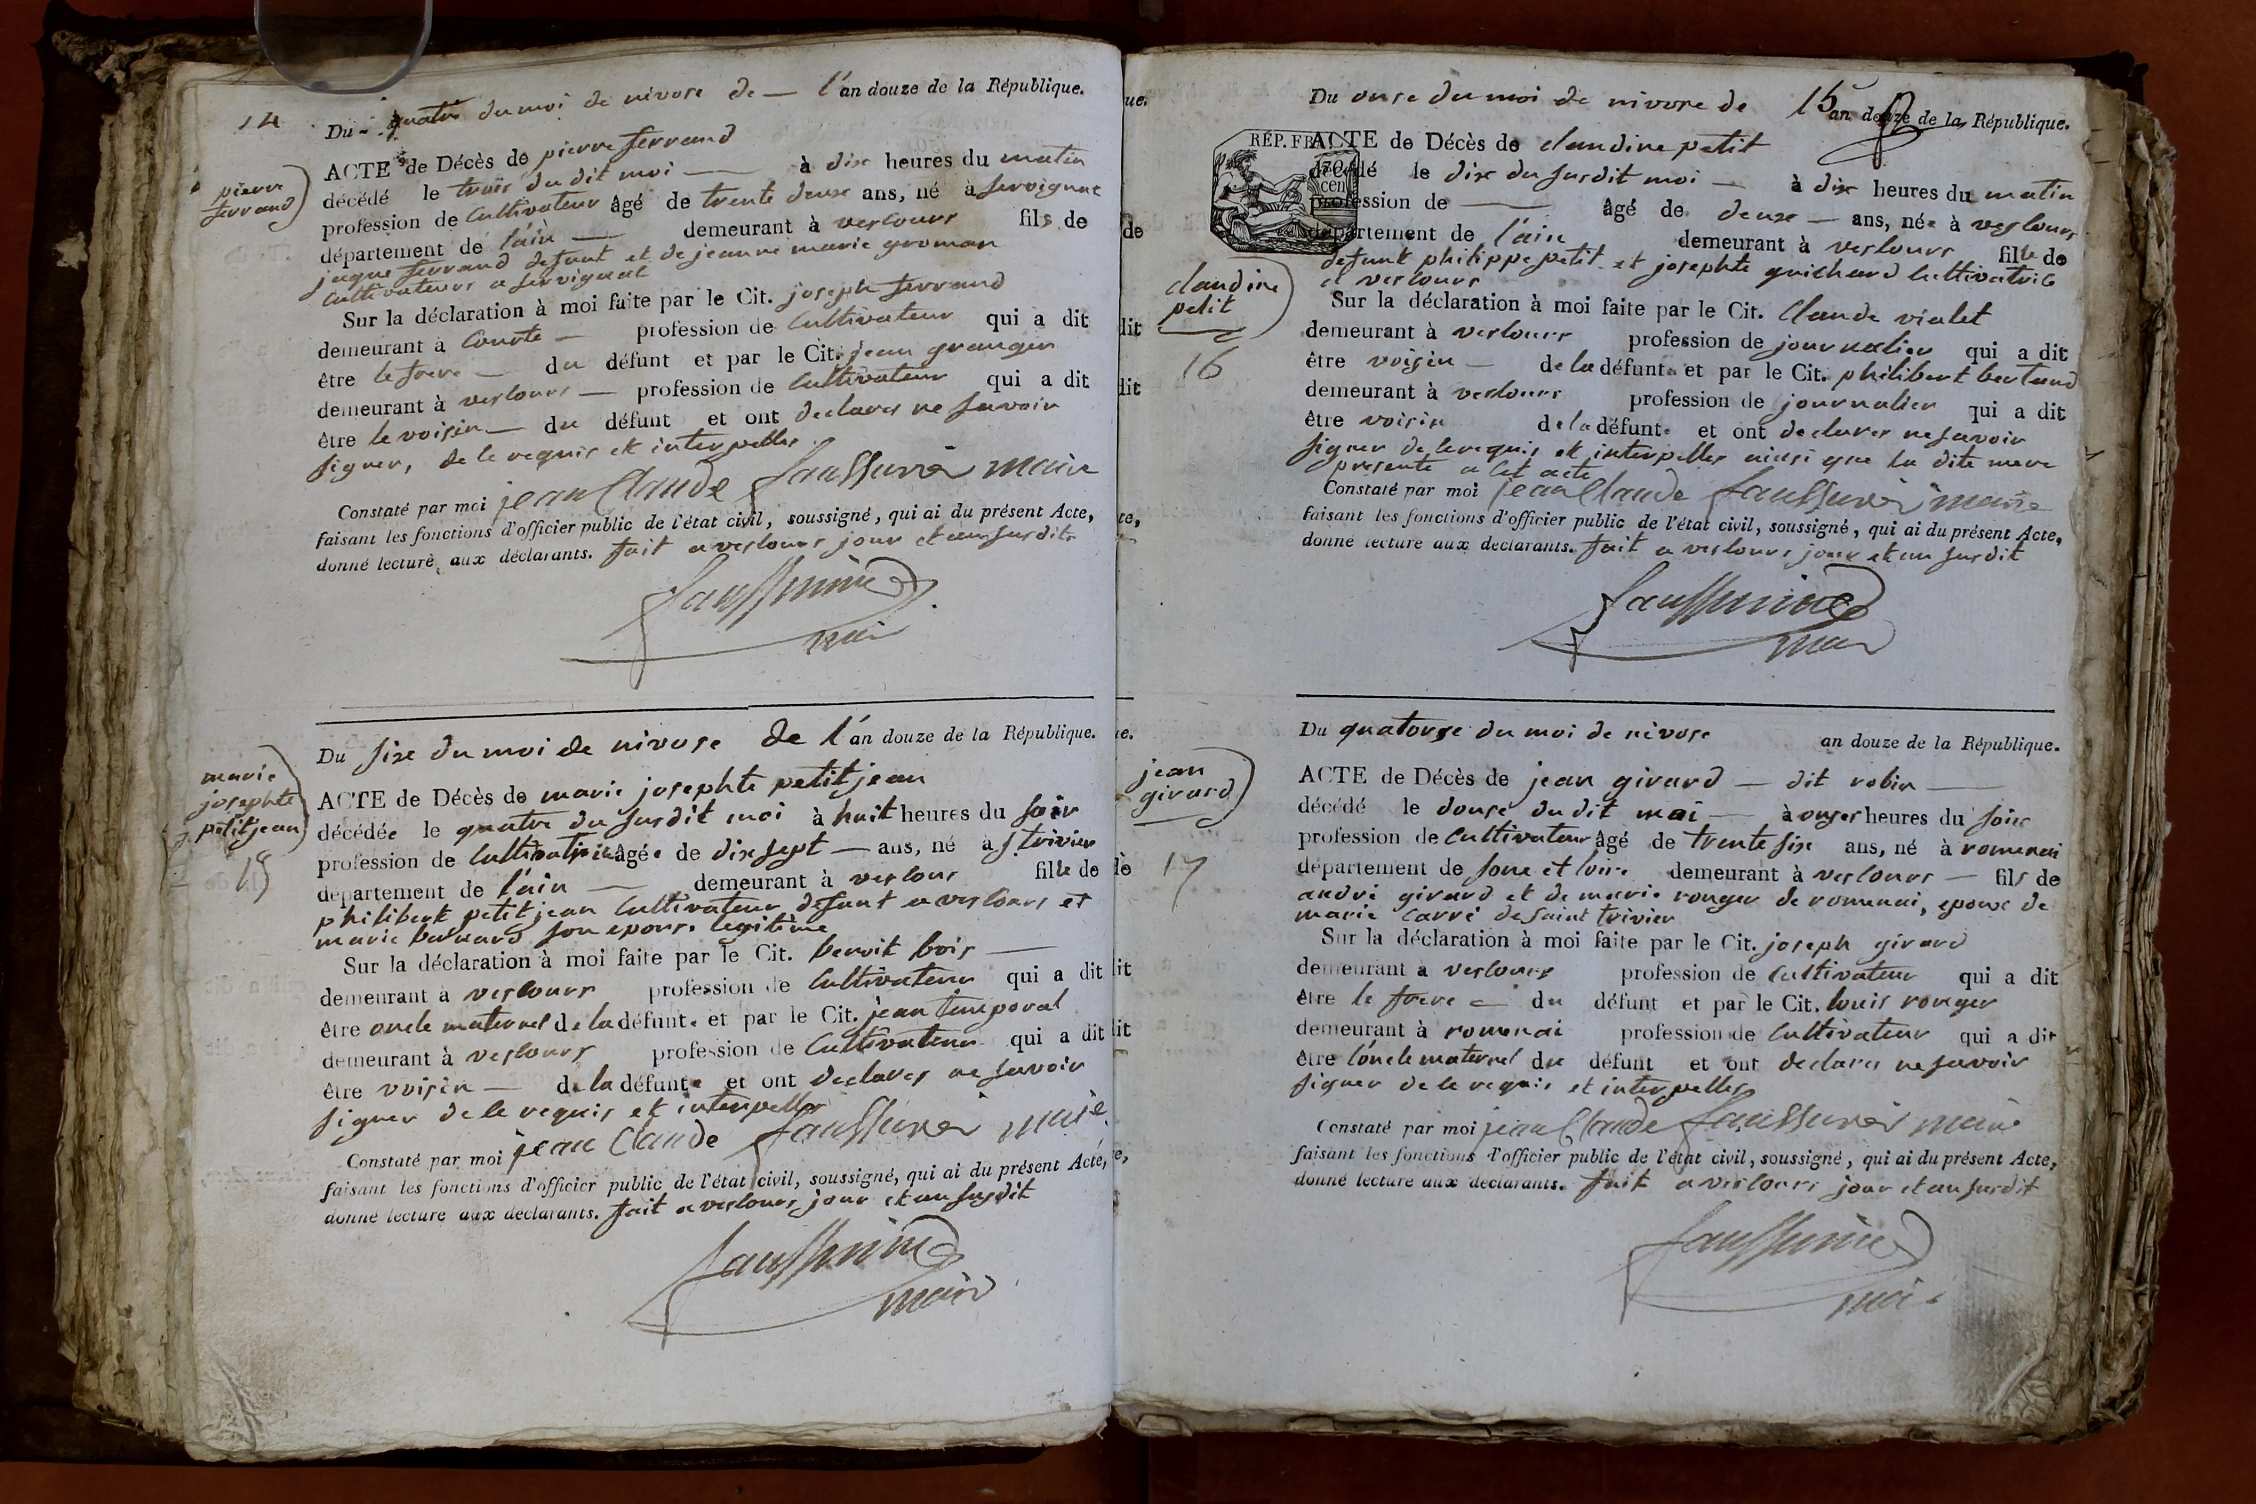 14
Du quatre du moi de nivose de — l'an douze de la République.
ACTE de Décès de pierre ferrand
décédé le trois du dit moi — à dix heures du matin
profession de Cultivateur âgé de trente deux ans, né à servignat
département de l'ain — demeurant à vescours fils de
jaque ferrand defunt et de jeanne marie groman
Cultivateurs a servignat
pierre
ferrand
Sur la déclaration à moi faite par le Cit. joseph ferrand
demeurant à Courte — profession de Cultivateur qui a dit
être le frere — du défunt et par le Cit. jean granger
demeurant à vescours — profession de Cultivateur qui a dit
être le voisin — du défunt et ont declarer ne savoir
signer, de le requis et interpeller
Constaté par moi jean Claude faussurier maire
faisant les fonctions d'officier public de l'état civil, soussigné, qui ai du présent Acte,
donné lecture aux déclarants. fait a vescours jour et an susdits
maire
Du six du moi de nivose de l'an douze de la République.
marie
josephte
petitjean
15
ACTE de Décès de marie josephte petitjean
décédée le quatre du susdit moi à huit heures du soir
profession de Cultivatrice âgée de dix sept — ans, né à s trivier
département de l'ain — demeurant à vescours fille de
philibert petitjean Cultivateur defunt a vescours et
marie son epouse legitime
Sur la déclaration à moi faite par le Cit. benoit bois —
demeurant à vescours profession de Cultivateur qui a dit
être oncle maternel de la défunte et par le Cit. jean temporal
demeurant à vescours profession de Cultivateur qui a dit
être voisin — de la défunte et ont declarer ne savoir
signer de le requis et interpeller
Constaté par moi jean Claude faussurier maire
faisant les fonctions d'officier public de l'état civil, soussigné, qui ai du présent Acte,
donné lecture aux déclarants. fait a vescours jour et an susdit
maire
Du onse du moi de nivose de 15 an douze de la République.
RÉP. FRA.
ACTE de Décès de claudine petit
décédé le dix du susdit moi — à dix heures du matin
profession de — âgé de deux — ans, née à vescours
département de l'ain demeurant à vescours fille de
defunt philippe petit et josephte guichard Cultivatrice
a vescours
claudine
petit
16
Sur la déclaration à moi faite par le Cit. Claude violet
demeurant à vescours profession de journalier qui a dit
être voisin — de la défunte et par le Cit. philibert bertand
demeurant à vescours profession de journalier qui a dit
être voisin de la défunte et ont declarer ne savoir
signer de le requis et interpeller ainsi que la dite mere
presente a cet acte
Constaté par moi jean Claude faussurier maire
faisant les fonctions d'officier public de l'état civil, soussigné, qui ai du présent Acte,
donné lecture aux déclarants. fait a vescours jour et an susdit
maire
Du quatorze du moi de nivose an douze de la République.
jean
girard
17
ACTE de Décès de jean girard — dit robin —
décédé le douse du dit moi — à onzes heures du soir
profession de Cultivateur âgé de trente six ans, né à romenai
département de sone et loire demeurant à vescours — fils de
andré girard et de marie rouger de romenai, epoux de
marie Carré de saint trivier
Sur la déclaration à moi faite par le Cit. joseph girard
demeurant à vescours profession de Cultivateur qui a dit
être le frere — du défunt et par le Cit. louis rouger
demeurant à romenai profession de Cultivateur qui a dit
être l'oncle maternel du défunt et ont declarer ne savoir
signer de le requis et interpeller
Constaté par moi jean Claude faussurier maire
faisant les fonctions d'officier public de l'état civil, soussigné, qui ai du présent Acte,
donné lecture aux déclarants. fait a vescours jour et an susdit
maire